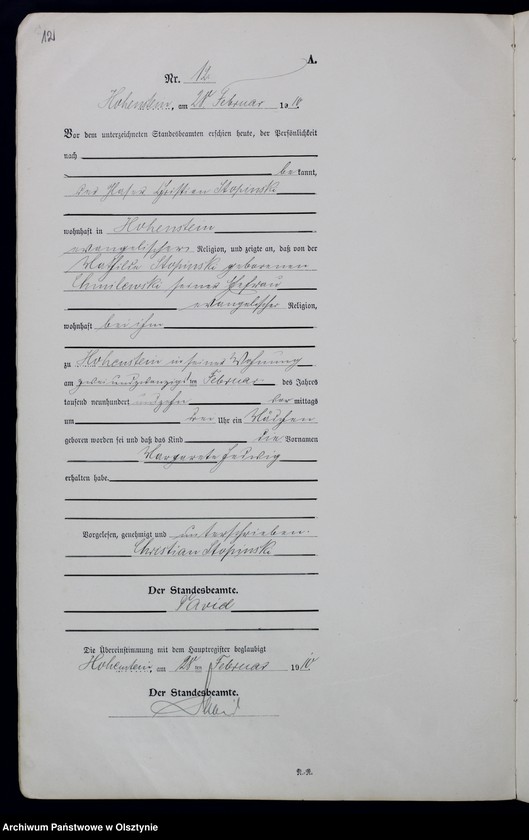 12
A.
Nr. 12
Hohenstein, am 28 Februar 1910.
Vor dem unterzeichneten Standesbeamten erschien heute, der Persönlichkeit
nach
bekannt,
Christian Stopinski
wohnhaft in Hohenstein
evangelischer Religion, und zeigte an, daß von der
Mathilde Stopinski geborenen
Chmilewski seiner Ehefrau
evangelischer Religion,
wohnhaft bei ihm
zu Hohenstein in seiner Wohnung
am zwei und zwanzigsten Februar des Jahres
tausend neunhundert und zehn vor mittags
um drei Uhr ein Mädchen
geboren worden sei und daß das Kind die Vornamen
Margarete Hedwig
erhalten habe.
Vorgelesen, genehmigt und unterschrieben.
Christian Stopinski
Der Standesbeamte.
David
Die Übereinstimmung mit dem Hauptregister beglaubigt
Hohenstein, am 28 Februar 1910.
Der Standesbeamte.
David
A.-R.
Archiwum Państwowe w Olsztynie